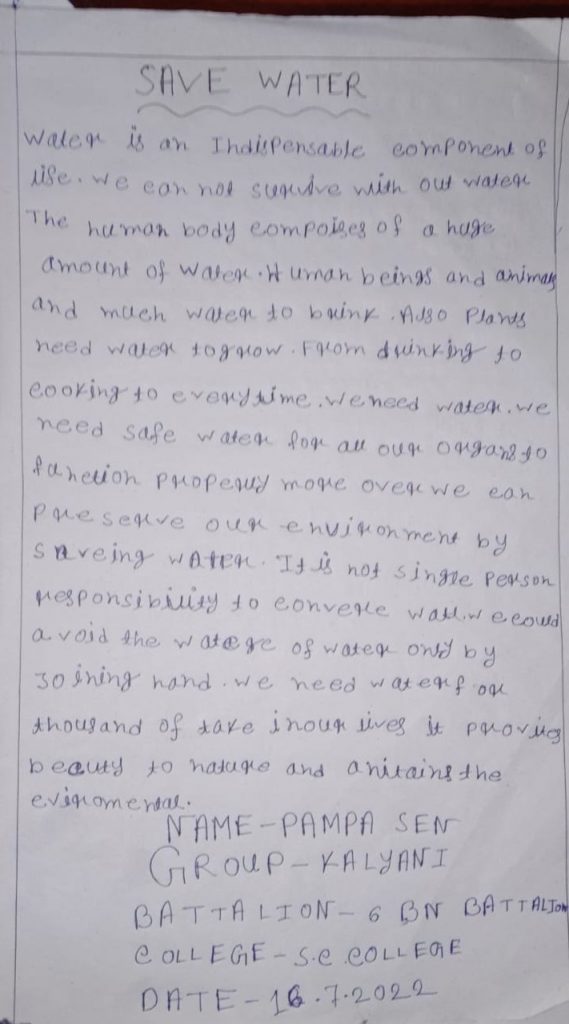 SAVE WATER
Water is an Indispensable component of
life. we can not survive with out water
The human body compoises of a huge
amount of water. Human beings and animals
and much water to brink. Also Plants
need water to grow. From drinking to
cooking to everytime. we need water. we
need safe water for all our organs to
function properly more over we can
preserve our environment by
saveing WATER. It is not single person
responsibility to converve wall. we could
avoid the watege of water only by
joining hand. we need water for
thousand of take in our lives it provies
beauty to nature and anitains the
evinomental.
NAME - PAMPA SEN
GROUP - KALYANI
BATTALION - 6 BN BATTALION
COLLEGE - S.C COLLEGE
DATE - 16.7.2022